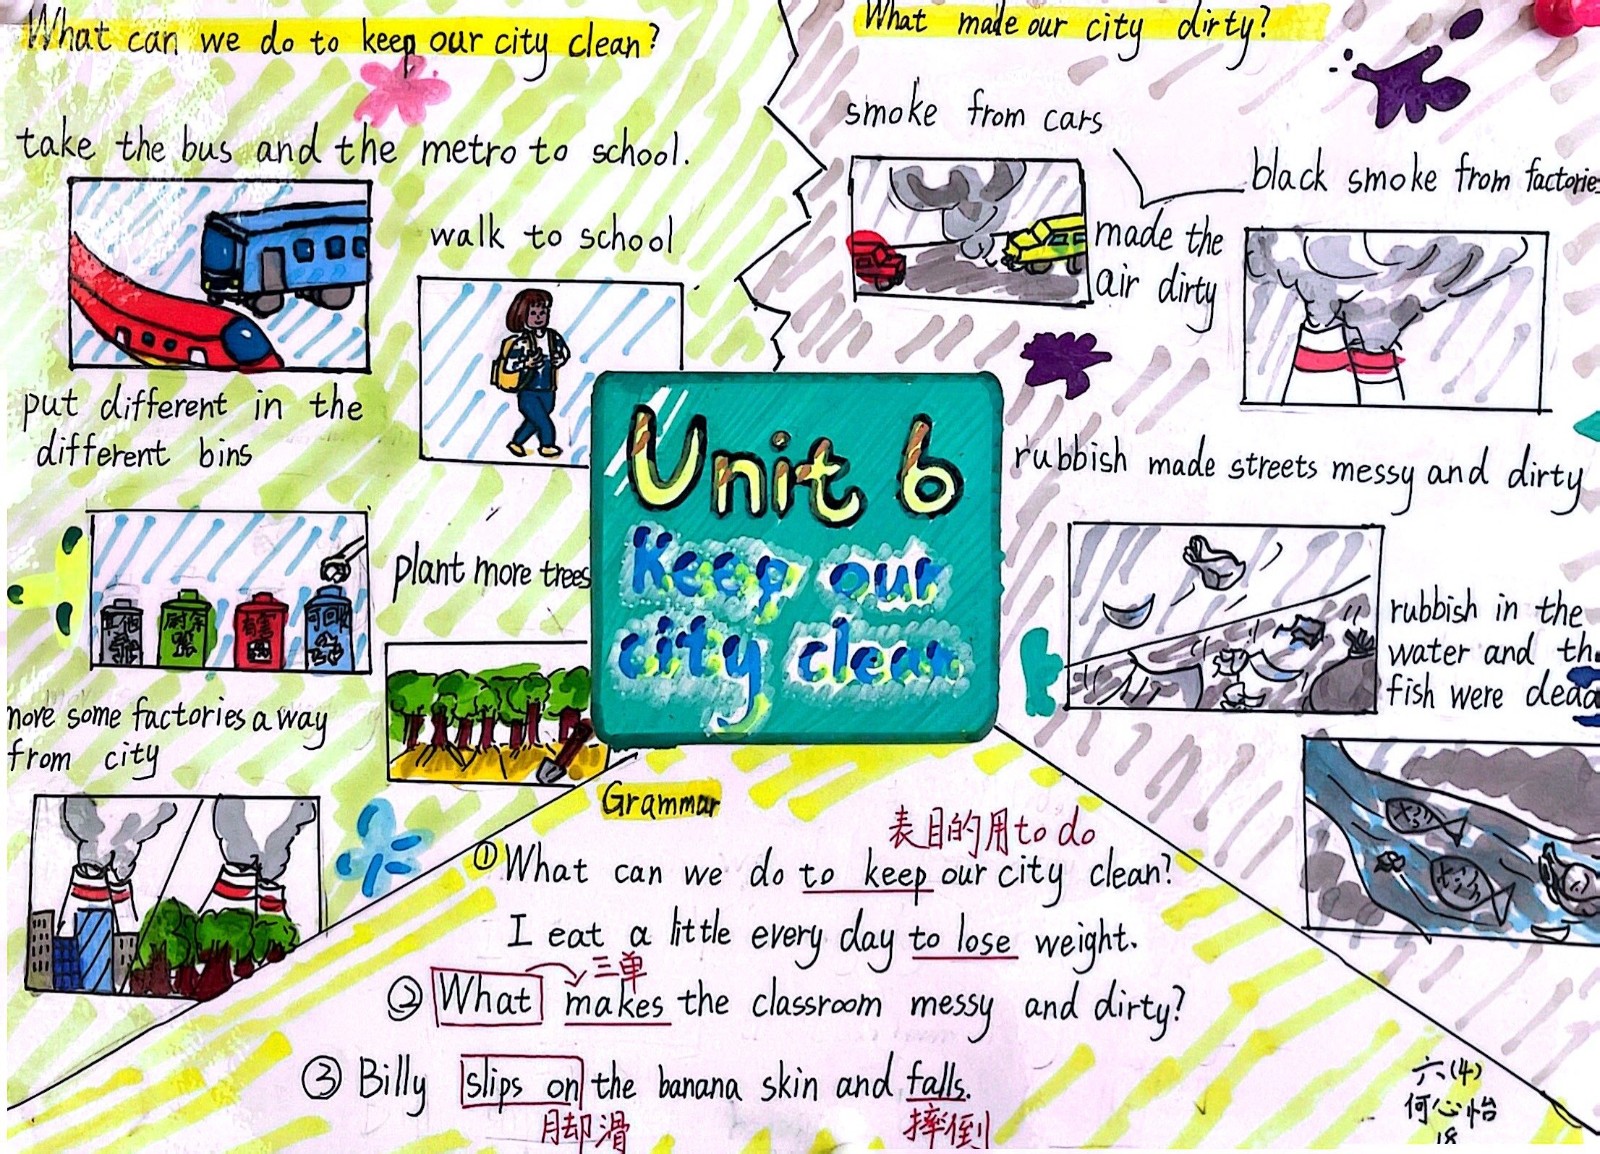 What can we do to keep our city clean?
take the bus and the metro to school.
walk to school
put different in the
different bins
其他
厨余
有害
可回收
plant more trees
move some factories away
from city
What made our city dirty?
smoke from cars
black smoke from factories
made the
air dirty
rubbish made streets messy and dirty
rubbish in the
water and the
fish were dead
Unit 6
Keep our
city clean
Grammar
表目的用to do
① What can we do to keep our city clean?
I eat a little every day to lose weight.
三单
② What makes the classroom messy and dirty?
③ Billy slips on the banana skin and falls.
脚滑
摔倒
六(4)
何心怡
18